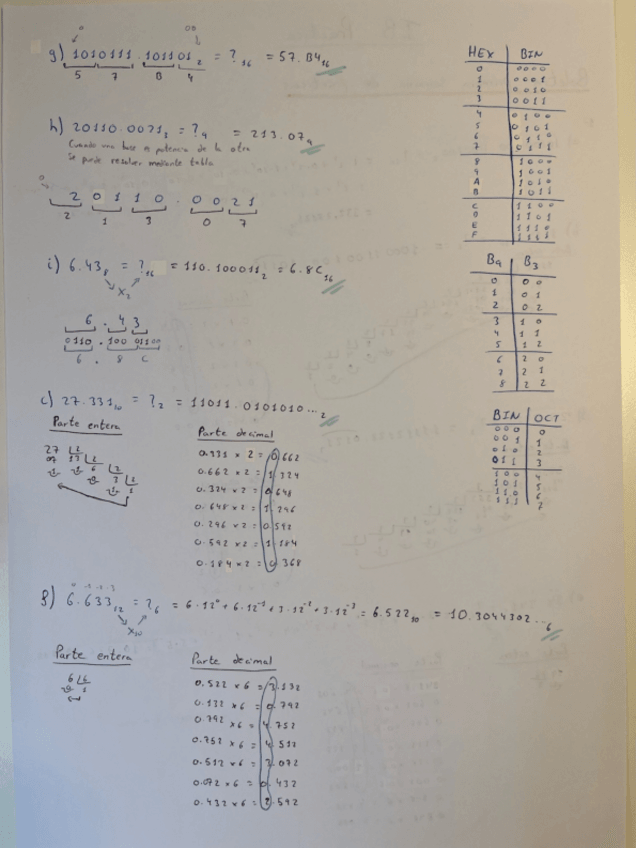 g) 1010111.101101₂ = ?₁₆ = 57.B4₁₆
0 00
5 7 B 4
h) 20110.0071₃ = ?₉ = 213.07₉
Cuando una base es potencia de la otra
Se puede resolver mediante tabla
0
2 0 1 1 0 . 0 0 2 1
2 1 3 0 7
i) 6.43₈ = ?₁₆ = 110.100011₂ = 6.8C₁₆
X₂
6 . 4 3
0110 . 100 01100
6 . 8 C
c) 27.331₁₀ = ?₂ = 11011.0101010...₂
Parte entera
27 2
07 13 2
1 1 6 2
0 3 2
1 1
Parte decimal
0.331 x 2 = 0.662
0.662 x 2 = 1.324
0.324 x 2 = 0.648
0.648 x 2 = 1.296
0.296 x 2 = 0.592
0.592 x 2 = 1.184
0.184 x 2 = 0.368
0 -1 -2 -3
f) 6.633₁₂ = ?₆ = 6·12⁰ + 6·12⁻¹ + 3·12⁻² + 3·12⁻³ = 6.522₁₀ = 10.3044302...₆
X₁₀
Parte entera
6 6
0 1
Parte decimal
0.522 x 6 = 3.132
0.132 x 6 = 0.792
0.792 x 6 = 4.752
0.752 x 6 = 4.512
0.512 x 6 = 3.072
0.072 x 6 = 0.432
0.432 x 6 = 2.592
HEX BIN
0 0000
1 0001
2 0010
3 0011
4 0100
5 0101
6 0110
7 0111
8 1000
9 1001
A 1010
B 1011
C 1100
D 1101
E 1110
F 1111
B₉ B₃
0 0 0
1 0 1
2 0 2
3 1 0
4 1 1
5 1 2
6 2 0
7 2 1
8 2 2
BIN OCT
000 0
001 1
010 2
011 3
100 4
101 5
110 6
111 7